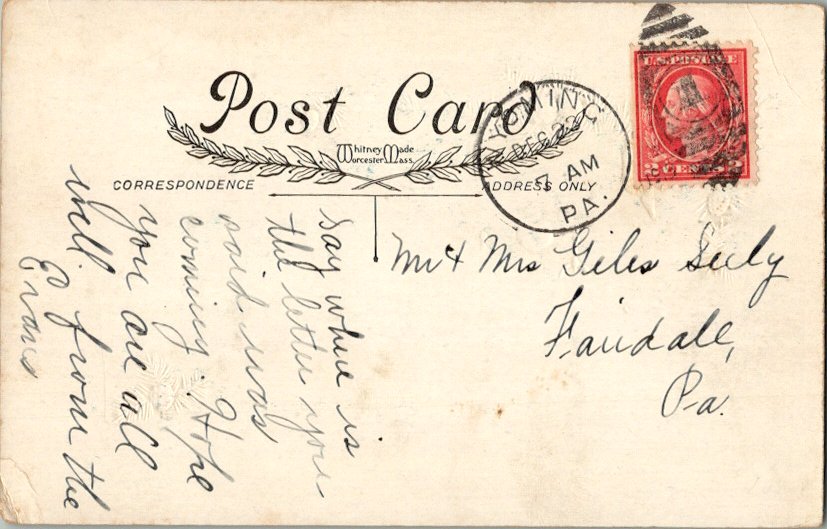 Post Card
Whitney Made
Worcester Mass.
CORRESPONDENCE
ADDRESS ONLY
OMING
DEC 22
7 AM
PA.
U.S. POSTAGE
2 CENTS 2
Mr & Mrs Giles Seely
Fairdale,
Pa.
say where is
the letter you
said was
coming. Hope
you are all
well from the
Evans